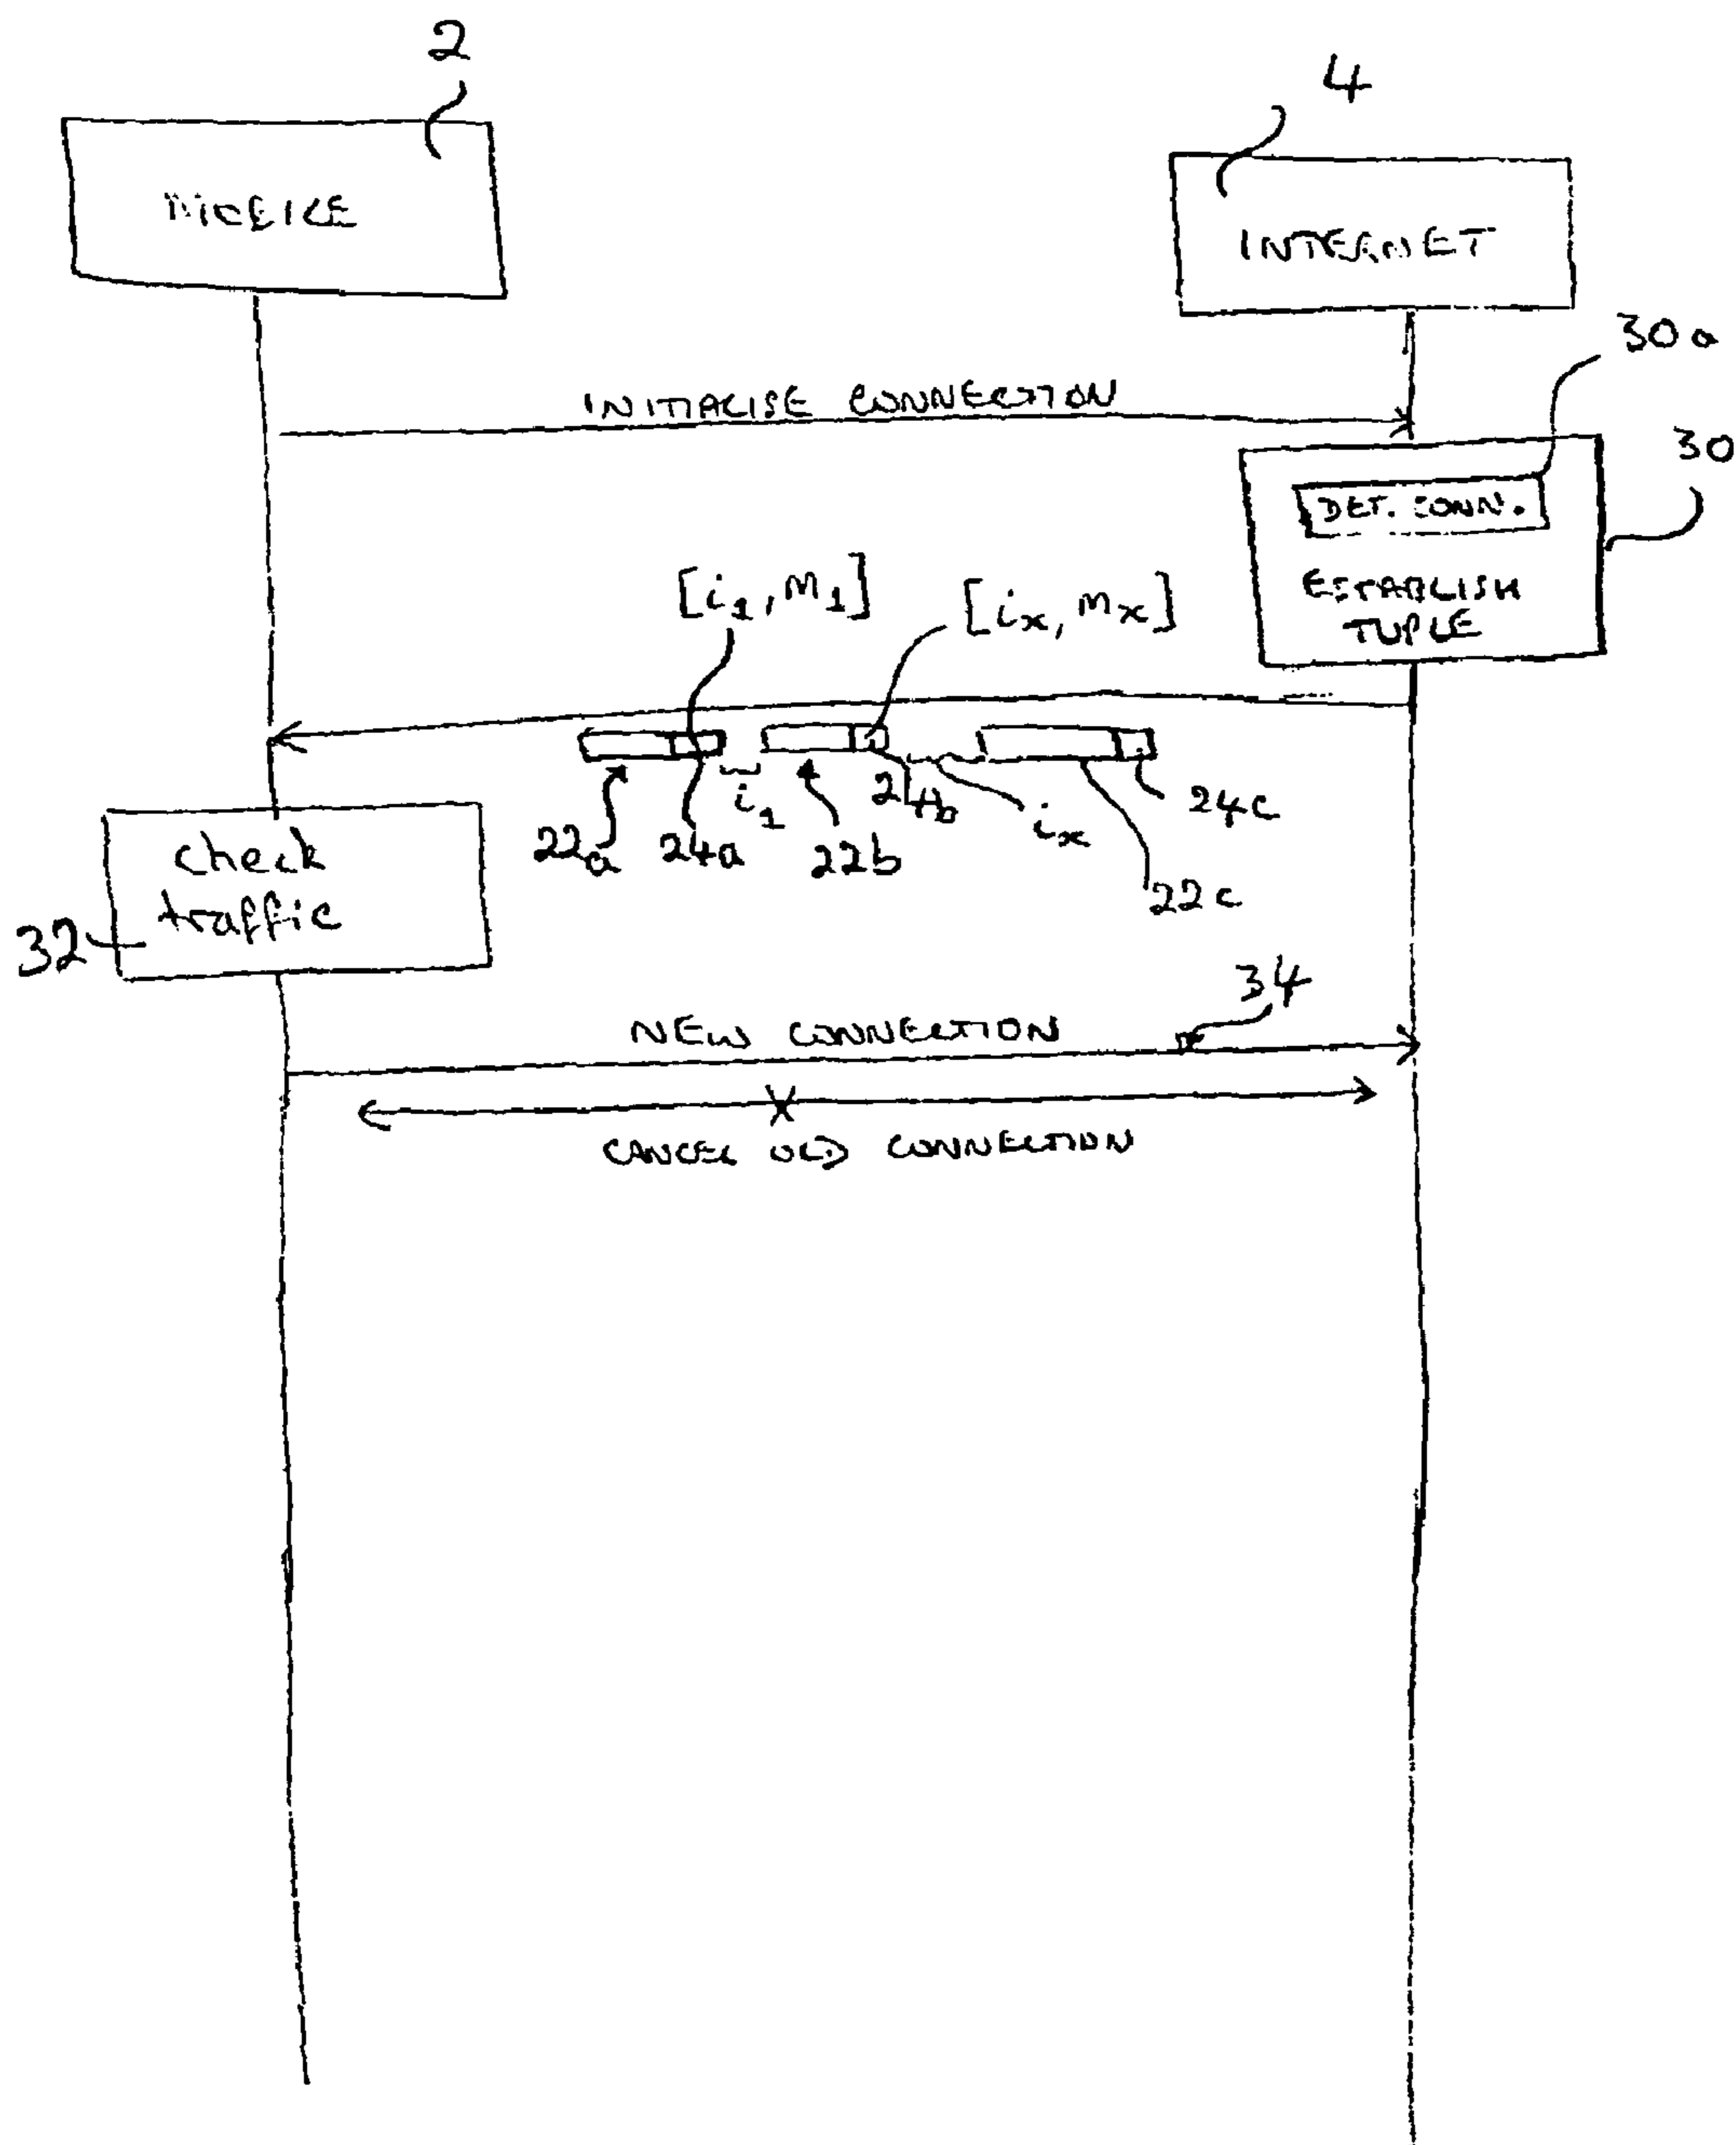 2
4
MOBILE
INTERNET
30a
INITIALISE CONNECTION
30
DET. CONN.
ESTABLISH
TUPLE
[i1, m1]
[ix, mx]
i1
ix
22a
24a
22b
24b
24c
22c
check
traffic
32
34
NEW CONNECTION
CANCEL OLD CONNECTION